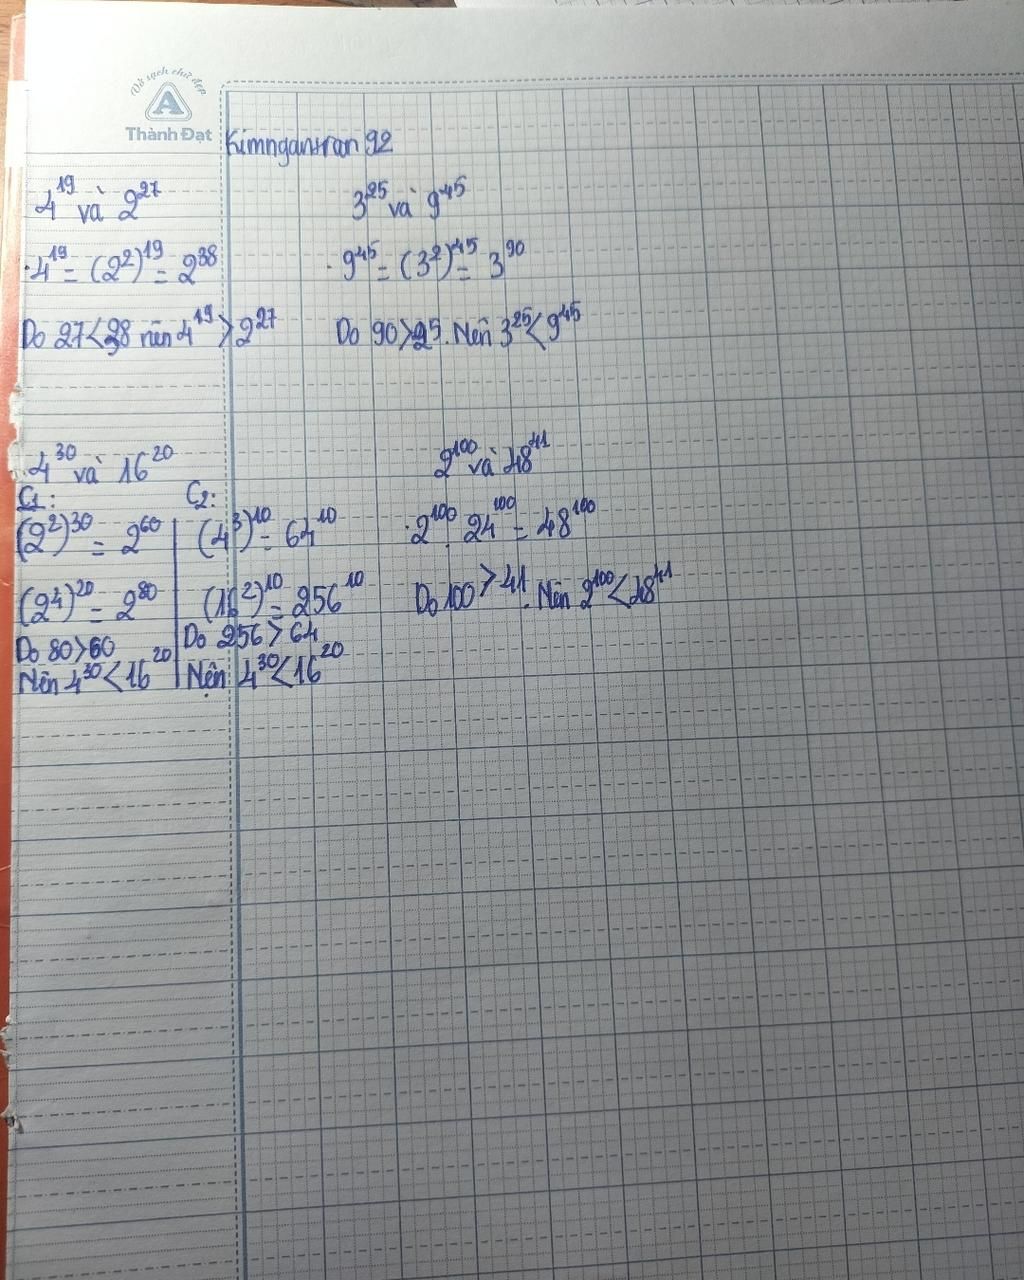 Vở sạch chữ đẹp
A
Thành Đạt
Kimngantran 92
4^19 và 2^27
4^19 = (2^2)^19 = 2^38
Do 27 < 38 nên 4^19 > 2^27
3^25 và 9^45
9^45 = (3^2)^45 = 3^90
Do 90 > 25. Nên 3^25 < 9^45
4^30 và 16^20
C1:
(2^2)^30 = 2^60
(2^4)^20 = 2^80
Do 80 > 60
Nên 4^30 < 16^20
C2:
(4^3)^10 = 64^10
(16^2)^10 = 256^10
Do 256 > 64
Nên 4^30 < 16^20
2^100 và 48^41
2^100 . 24^100 = 48^100
Do 100 > 41. Nên 2^100 < 48^41